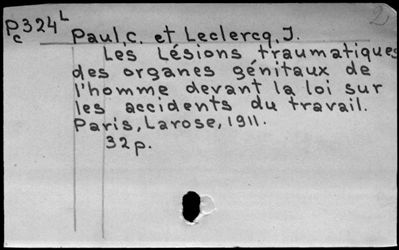 Pc324L
Paul, C. et Leclercq, J.
Les Lésions traumatiques
des organes génitaux de
l'homme devant la loi sur
les accidents du travail.
Paris, Larose, 1911.
32 p.
2